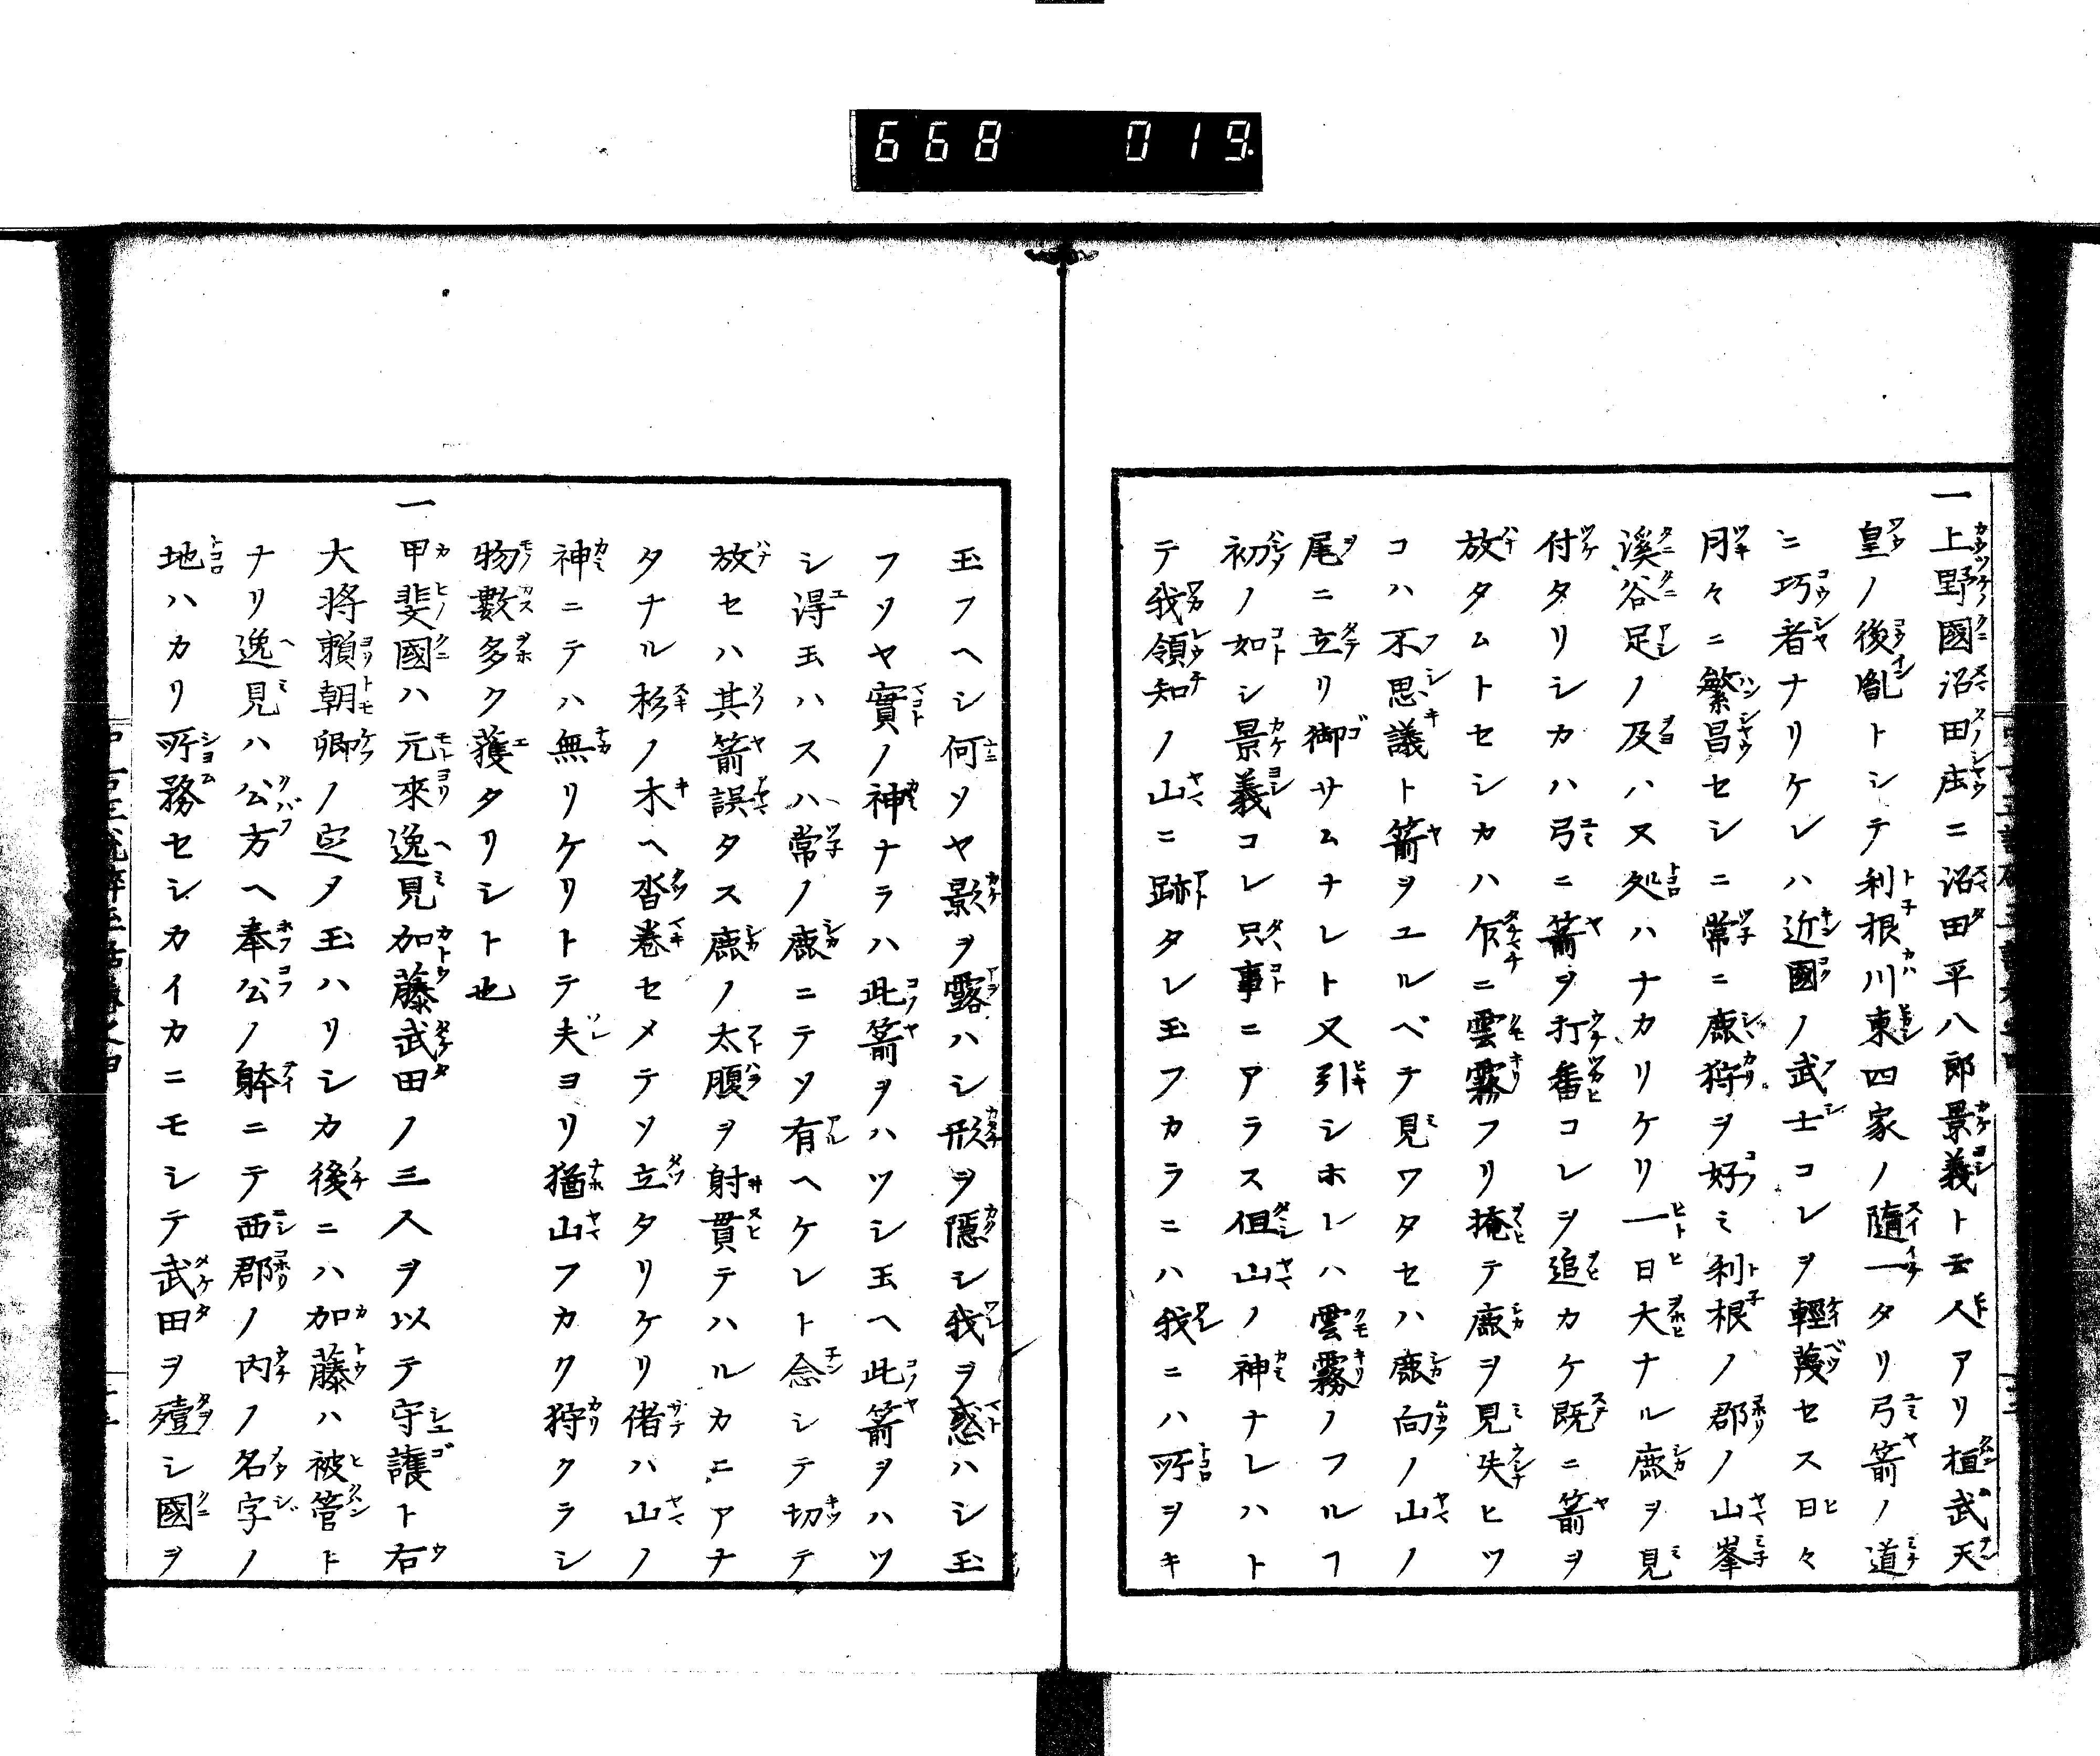 668 019
一上野國沼田庄ニ沼田平八郎景義ト云人アリ桓武天
皇ノ後胤トシテ利根川東四家ノ隨一タリ弓箭ノ道
ニ巧者ナリケレハ近國ノ武士コレヲ輕蔑セス日々
月々ニ繁昌セシニ常ニ鹿狩ヲ好ミ利根ノ郡ノ山峯
溪谷足ノ及ハヌ処ハナカリケリ一日大ナル鹿ヲ見
付タリシカハ弓ニ箭ヲ打番コレヲ追カケ既ニ箭ヲ
放タムトセシカハ乍ニ雲霧フリ掩テ鹿ヲ見失ヒツ
コハ不思議ト箭ヲユルベテ見ワタセハ鹿向ノ山ノ
尾ニ立リ御サムナレト又引シホレハ雲霧ノフルフ
初ノ如シ景義コレ只事ニアラス伹山ノ神ナレハト
テ我領知ノ山ニ跡タレ玉フカラニハ我ニハ所ヲキ
玉フヘシ何ソヤ影ヲ露ハシ形ヲ隱シ我ヲ惑ハシ玉
フソヤ實ノ神ナラハ此箭ヲハツシ玉ヘ此箭ヲハツ
シ得玉ハスハ常ノ鹿ニテソ有ヘケレト念シテ切テ
放セハ其箭誤タス鹿ノ太腹ヲ射貫テハルカニアナ
タナル杉ノ木ヘ沓卷セメテソ立タリケリ偖ハ山ノ
神ニテハ無リケリトテ夫ヨリ猶山フカク狩クラシ
物數多ク獲タリシト也
一甲斐國ハ元來逸見加藤武田ノ三人ヲ以テ守護ト右
大将頼朝卿ノ定メ玉ハリシカ後ニハ加藤ハ被管ト
ナリ逸見ハ公方ヘ奉公ノ躰ニテ西郡ノ内ノ名字ノ
地ハカリ所務セシカイカニモシテ武田ヲ殪シ國ヲ